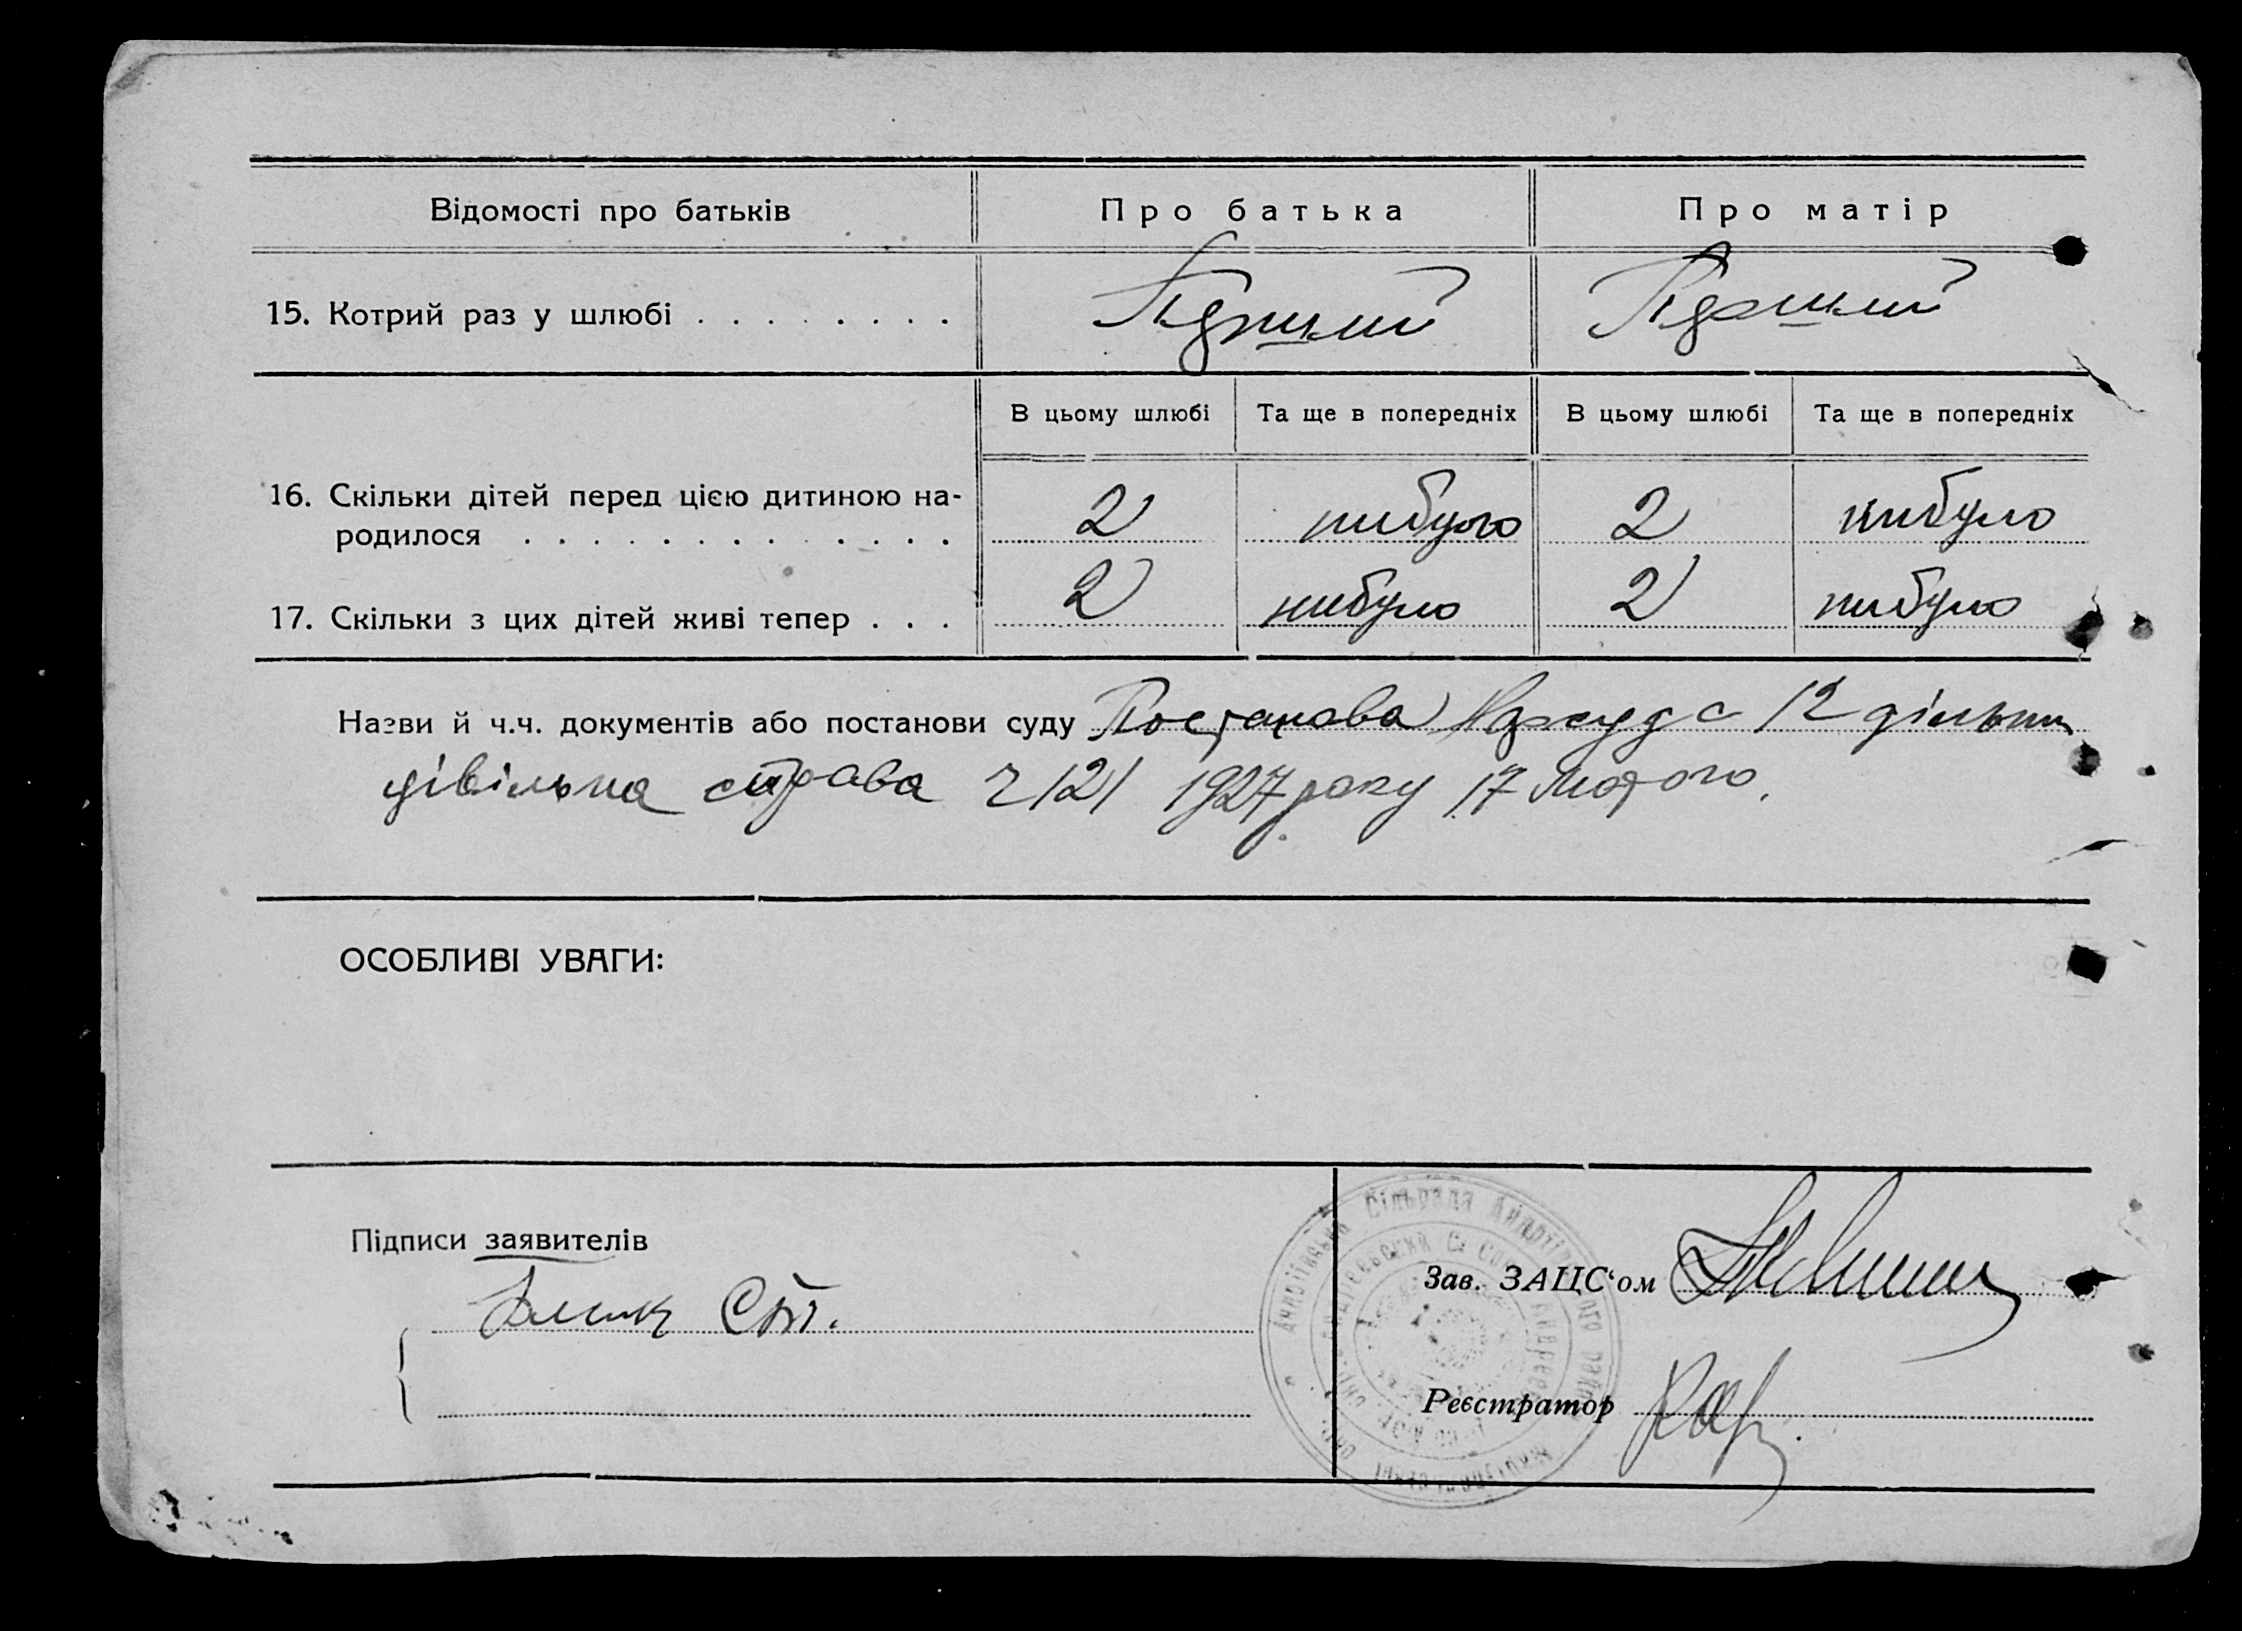 Відомості про батьків Про батька Про матір
15. Котрий раз у шлюбі
В цьому шлюбі Та ще в попередніх В цьому шлюбі Та ще в попередніх
16. Скільки дітей перед цією дитиною на-
родилося 2 нибуло 2 нибуло
17. Скільки з цих дітей живі тепер 2 нибуло 2 нибуло
Назви й ч.ч. документів або постанови суду Постанова Нарсуда 12 дільни
цівільна справа ч 121 1927 року 17 Лютого.
ОСОБЛИВІ УВАГИ:
Підписи заявителів
Зав. ЗАЦС‘ом
Реєстратор